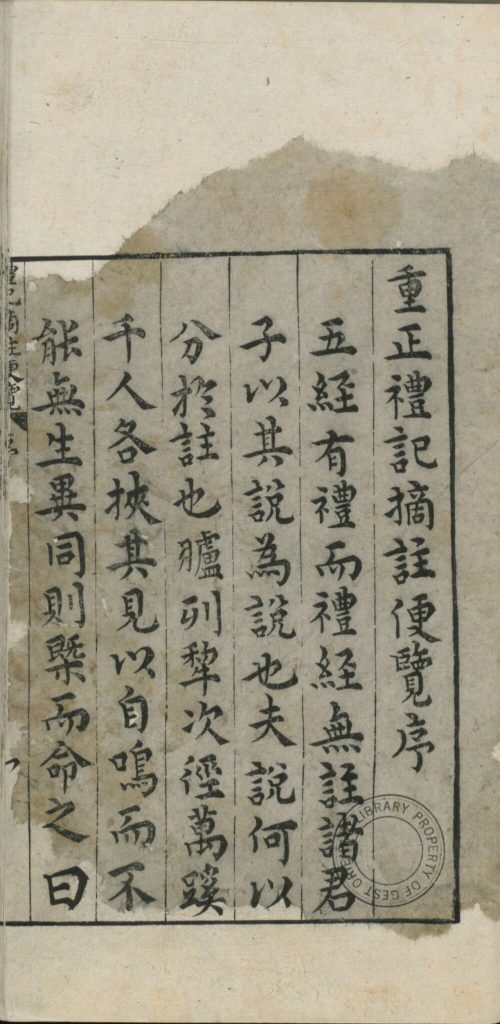 重正禮記摘註便覽序
五経有禮而禮経無註諸君
子以其説為説也夫説何以
分於註也臚列犂次徑萬蹊
千人各挾其見以自鳴而不
能無生異同則槩而命之曰
禮記摘註便覽
LIBRARY PROPERTY OF GEST